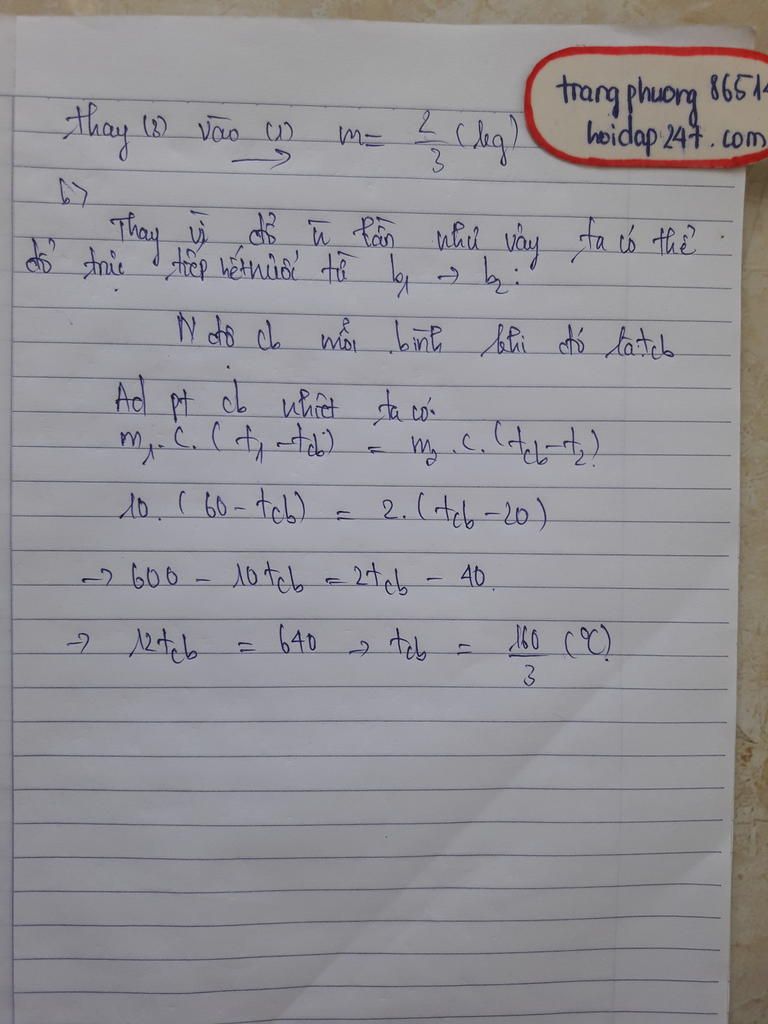 trangphuong 8651
hoidap247.com
thay (3) vào (1) → m = 2/3 (kg)
b>
Thay vì đổ n lần như vậy ta có thể
đổ trực tiếp hết nước từ b₁ → b₂:
N độ cb mỗi bình khi đó là tcb
Ad pt cb nhiệt ta có:
m₁.C.(t₁-tcb) = m₂.C.(tcb-t₂)
10.(60-tcb) = 2.(tcb-20)
→ 600 - 10tcb = 2tcb - 40.
→ 12tcb = 640 → tcb = 160/3 (°C)